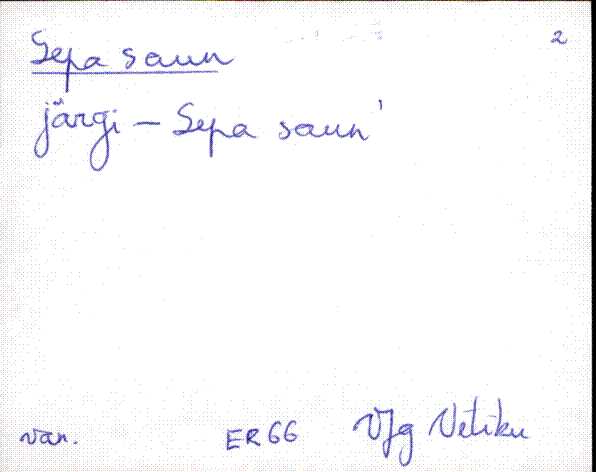 2
Sepa saun
järgi – Sepa saun'
van. ER 66 VJg Vetiku